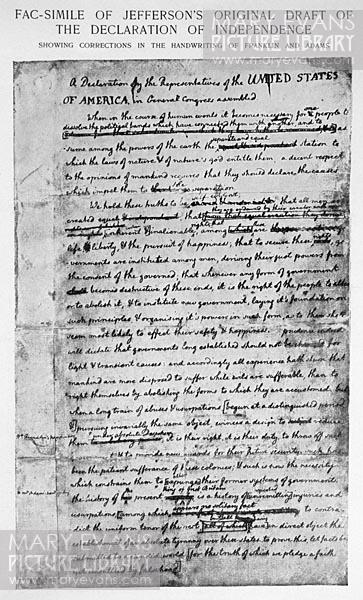 FAC-SIMILE OF JEFFERSON'S ORIGINAL DRAFT OF
THE DECLARATION OF INDEPENDENCE
SHOWING CORRECTIONS IN THE HANDWRITING OF FRANKLIN AND ADAMS
MARY EVANS
PICTURE LIBRARY
A Declaration by the Representatives of the UNITED STATES
OF AMERICA, in General Congress assembled.
When in the course of human events it becomes necessary for one people to
dissolve the political bands which have connected them with another, and to
sume among the powers of the earth the station to
which the laws of nature & of nature's god entitle them, a decent respect
to the opinions of mankind requires that they should declare the causes
which impel them to the separation
We hold these truths to be self-evident that all men are
created equal
inalienable, among
life, & liberty, & the pursuit of happiness; that to secure these
vernments are instituted among men, deriving their just powers from
the consent of the governed; that whenever any form of government
becomes destructive of these ends, it is the right of the people to alter
or to abolish it, & to institute new government, laying it's foundation on
such principles & organising it's powers in such form, as to them shall
seem most likely to effect their safety & happiness. prudence indeed
will dictate that governments long established should not be changed for
light & transient causes: and accordingly all experience hath shewn that
mankind are more disposed to suffer while evils are sufferable, than to
right themselves by abolishing the forms to which they are accustomed. but
when a long train of abuses & usurpations [begun at a distinguished period
& pursuing invariably the same object, evinces a design to reduce
them it is their right, it is their duty, to throw off such
& to provide new guards for their future security. such has
been the patient sufferance of these colonies; & such is now the necessity
which constrains them to expunge their former systems of government.
the history of present is a history of unremitting injuries and
usurpations, among which to contra-
dict the uniform tenor of the rest, all of which have in direct object the
establishment of an absolute tyranny over these states. to prove this, let facts be
world, for the truth of which we pledge a faith
MARY EVANS
PICTURE LIBRARY
www.maryevans.com